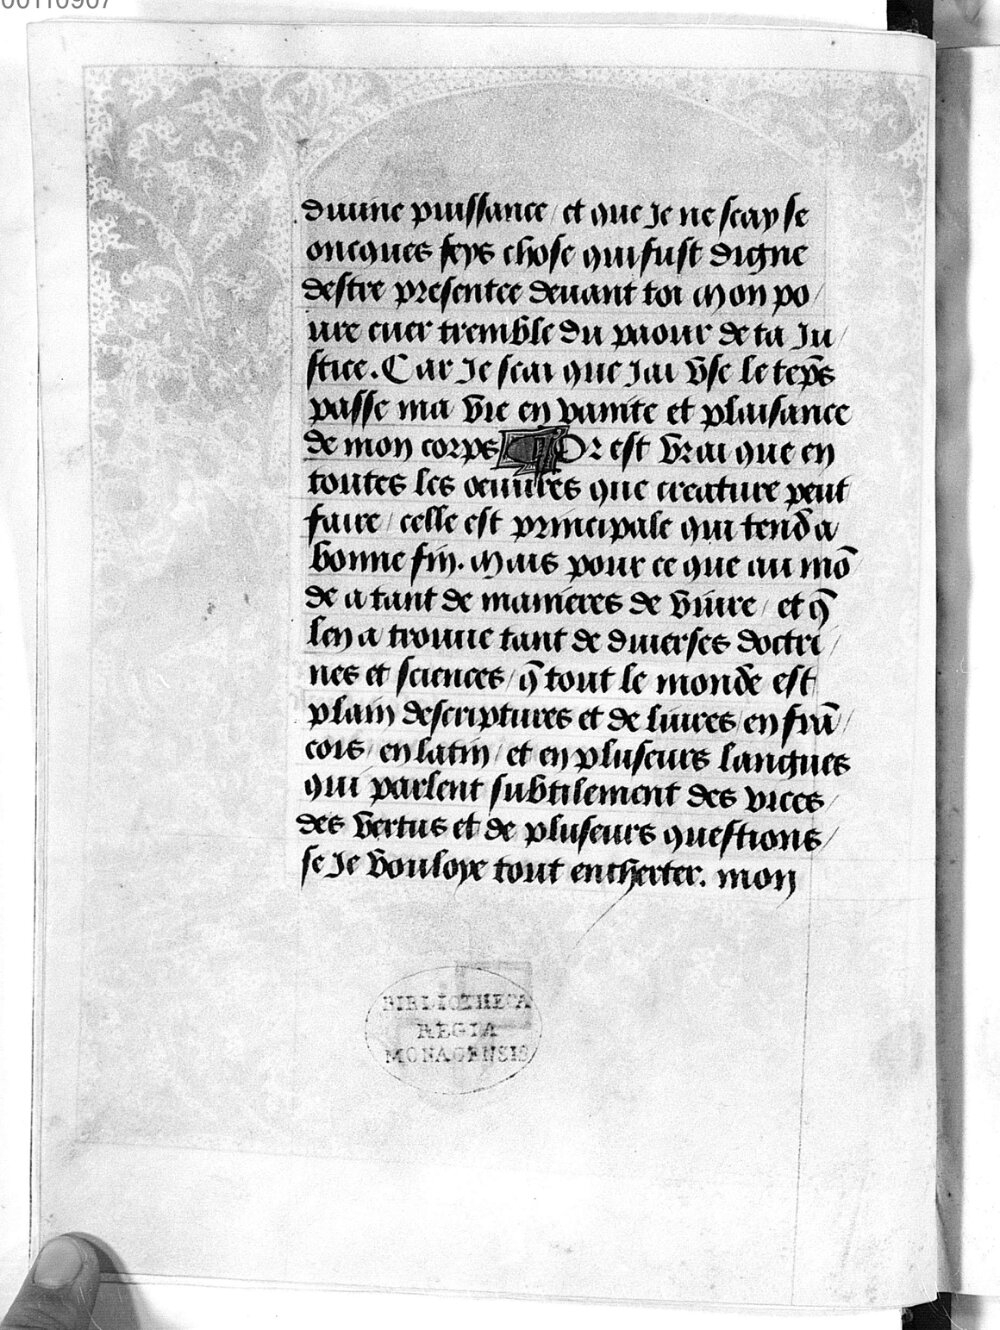 00110907
diuine puissance / et que Je ne scay se
oncques feys chose qui fust digne
destre presentee deuant toi Mon po /
ure cuer tremble du paour de ta Ju /
stice. Car Je scai que Jai vse le tẽps
passe ma vie en vanite et plaisance
de mon corps Or est vrai que en
toutes les oeuures que creature peut
faire / celle est principale qui tend a
bonne fin. Mais pour ce que au mõ
de a tant de manieres de viure / et q̃
len a trouue tant de diuerses doctri /
nes et sciences / q̃ tout le monde est
plain descriptures et de liures / en frã /
cois / en latin / et en pluseurs langues
qui parlent subtilement des vices /
des vertus et de pluseurs questions /
se Je vouloye tout encherter. mon
BIBLIOTHECA
REGIA
MONACENSIS